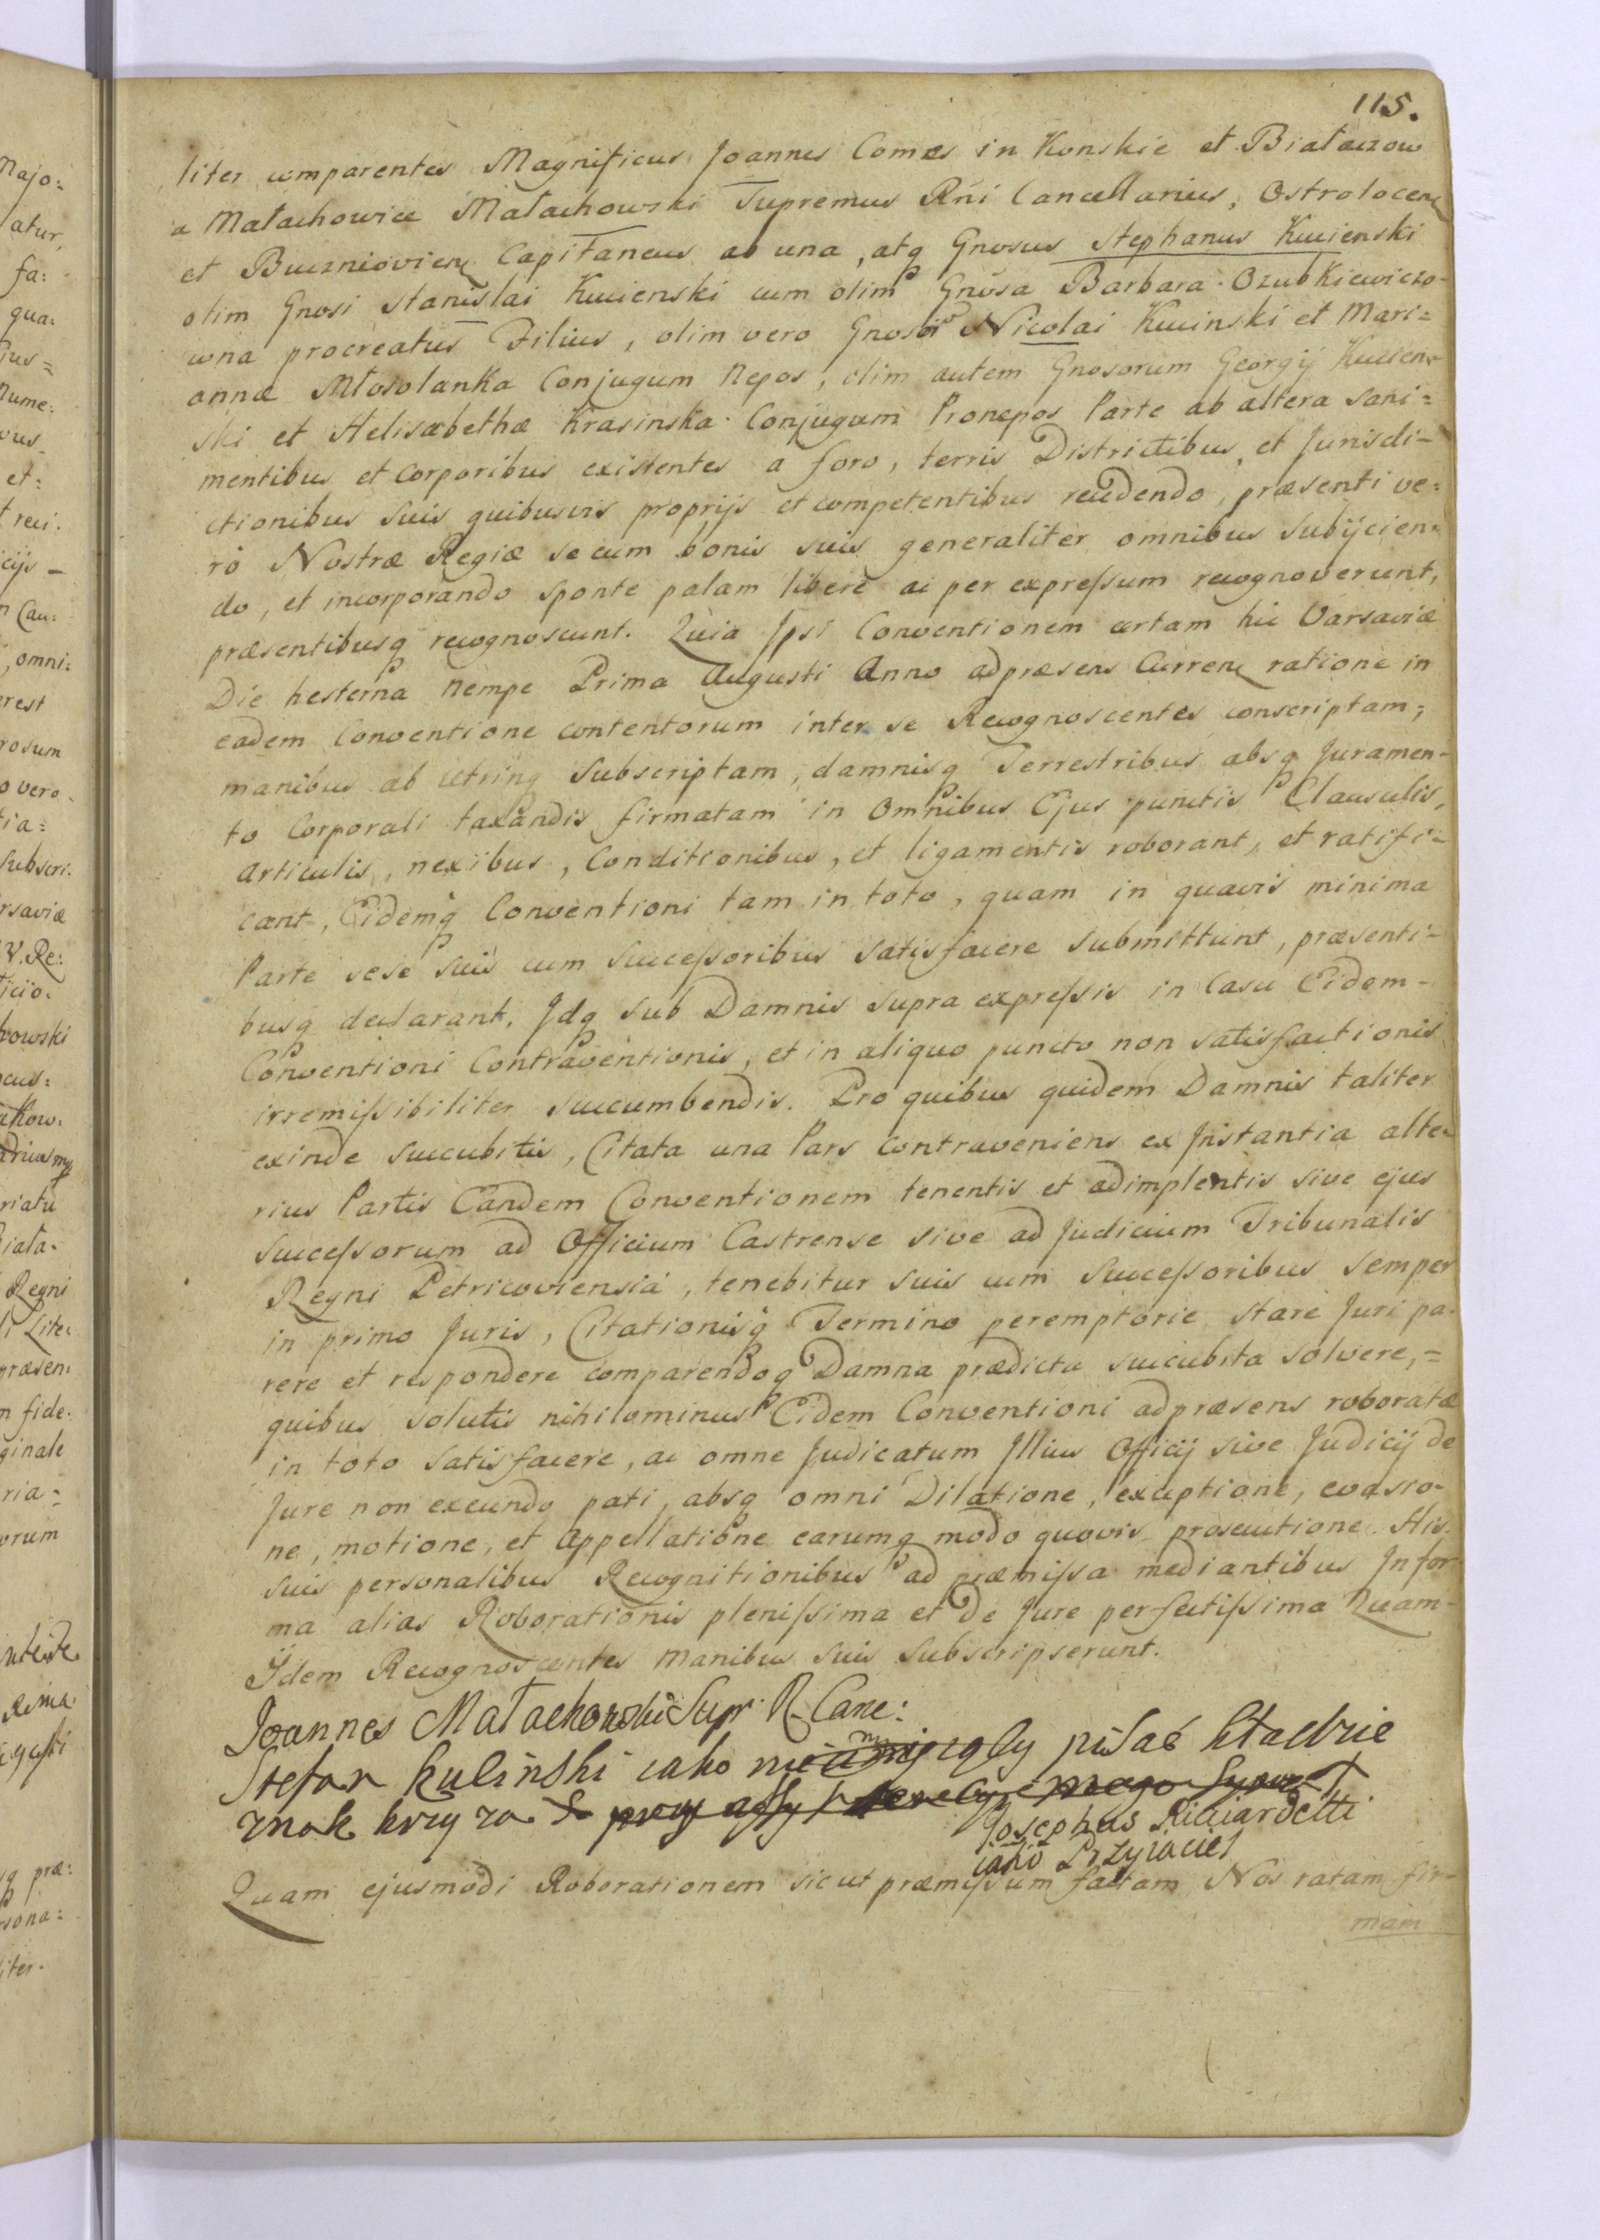 115.
liter comparentes Magnificus Joannes Comes in Konskie et Białaczow
a Małachowice Małachowski Supremus Rni Cancellarius, Ostrolocen
et Buczniovien Capitaneus ab una, atq Gnosus Stephanus Kucienski
olim Gnosi Stanislai Kucienski cum olim Gnosa Barbara Ozubkiewiczo-
wna procreatus Filius, olim vero Gnosor Nicolai Kucinski et Mari=
annæ Młosolanka Conjugum Nepos, olim autem Gnosorum Georgij Kucien-
ski et Helisabethæ Krasinska Conjugum Pronepos Parte ab altera sani=
mentibus et corporibus existentes a foro, terris Districtibus, et Jurisdi-
ctionibus suis quibusvis proprijs et competentibus recedendo, præsenti ve=
rò Nostræ Regiæ se cum bonis suis generaliter omnibus subijcien=
do, et incorporando sponte palam libere ac per expressum recognoverunt,
præsentibusq recognoscunt. Quia Ipsi Conventionem certam hic Varsaviæ
Die hesterna nempe Prima Augusti Anno adpræsens Curren ratione in
eadem Conventione contentorum inter se Recognoscentes conscriptam,
manibus ab utrinq subscriptam, damnisq Terrestribus absq Juramen-
to Corporali taxandis firmatam in Omnibus Ejus punctis Clausulis,
Articulis, nexibus, Conditionibus, et ligamentis roborant, et ratifi=
cant, Eidemq Conventioni tam in toto, quam in quavis minima
Parte sese suis cum Successoribus satisfacere submittunt, præsenti-
busq declarant. Idq sub Damnis supra expressis in Casu Eidem-
Conventioni Contraventionis, et in aliquo puncto non satisfactionis
irremissibiliter succumbendis. Pro quibus quidem Damnis taliter
exinde succubitis, Citata una Pars contraveniens ex Instantia alte-
rius Partis Eandem Conventionem tenentis et adimplentis sive ejus
Successorum ad Officium Castrense sive ad Judicium Tribunalis
Regni Petricoviensia, tenebitur suis cum Successoribus semper
in primo Juris, Citationisq Termino peremptorie stare Juri pa-
rere et respondere comparendoq Damna prædicta succubita solvere,=
quibus solutis nihilominus Eidem Conventioni adpræsens roboratæ
in toto satisfacere, ac omne Judicatum Illius Officij sive Judicij de
Jure non exeundo pati, absq omni Dilatione, exceptione, evasio-
ne, motione, et Appellatione earumq modo quovis prosecutione. His
suis personalibus Recognitionibus ad præmissa mediantibus In for-
ma alias Roborationis plenissima et de Jure perfectissima Quam-
Ijdem Recognoscentes manibus suis subscripserunt.
Joannes Małachowski Supr. R. Canc:
Stefan Kulinski iako nie pisać kładzie
znak krzyza
Josephus Ricciardetti
iako Przyiaciel
Quam ejusmodi Roborationem sicut præmissum factam, Nos ratam fir-
mam